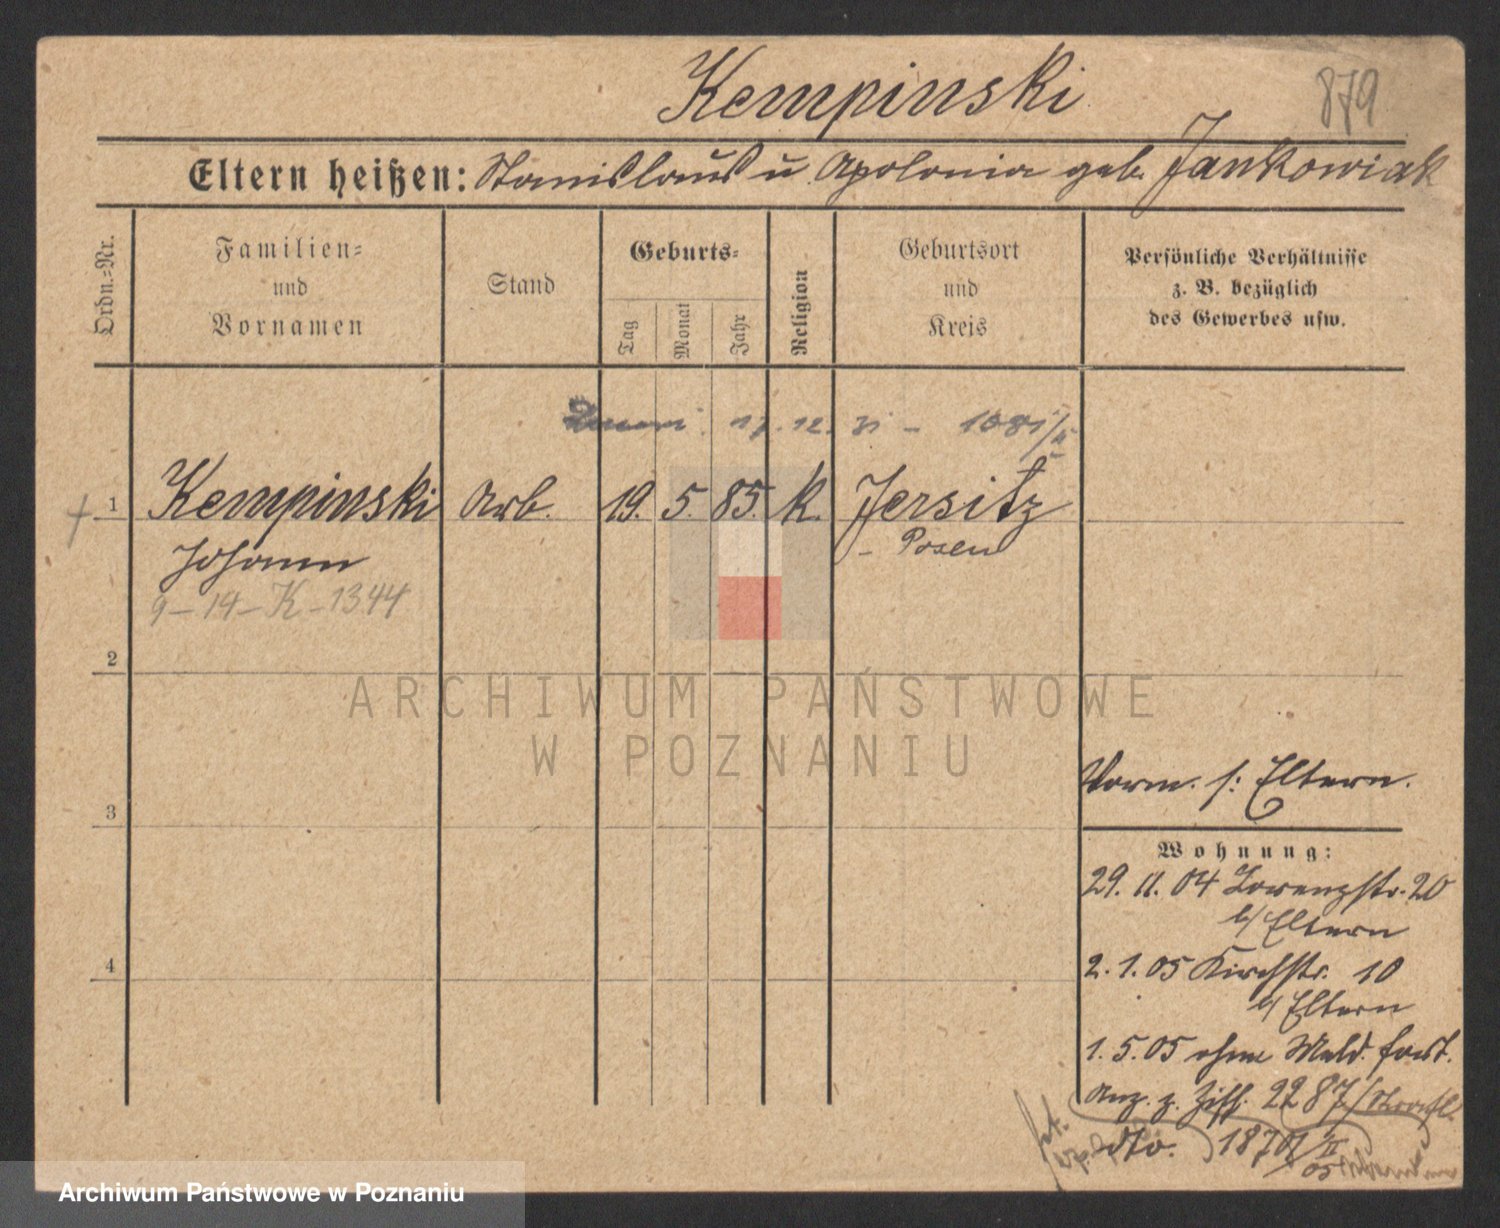 Kempinski
879
Eltern heißen: Stanislaus u Apolonia geb. Jankowiak
Ordn.-Nr.
Familien-
und
Vornamen
Stand
Geburts-
Tag
Monat
Jahr
Religion
Geburtsort
und
Kreis
Persönliche Verhältnisse
z. B. bezüglich
des Gewerbes usw.
17. 12. 31 - 1081/
1 Kempinski Arb. 19. 5. 85. K. Jersitz
Johann - Posen
9-14-K-1344
2
ARCHIWUM PAŃSTWOWE
W POZNANIU
Vorm. s: Eltern.
3
Wohnung:
29. 11. 04 Lorenzstr. 20
b/ Eltern
2. 1. 05 Kirchstr. 10
b/ Eltern
4
1. 5. 05 ohne Meld. fort.
Anz. z. Ziff. 2287/
dto. 1870/II
05
Archiwum Państwowe w Poznaniu